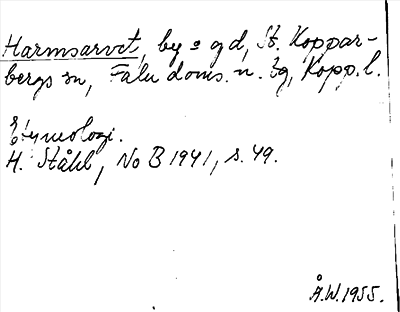 Harmsarvet, by o gd, St. Koppar-
bergs sn, Falu doms. n. tg, Kopp. l.
Etymologi.
H. Ståhl, NoB 1941, s. 49.
Å.W. 1955.